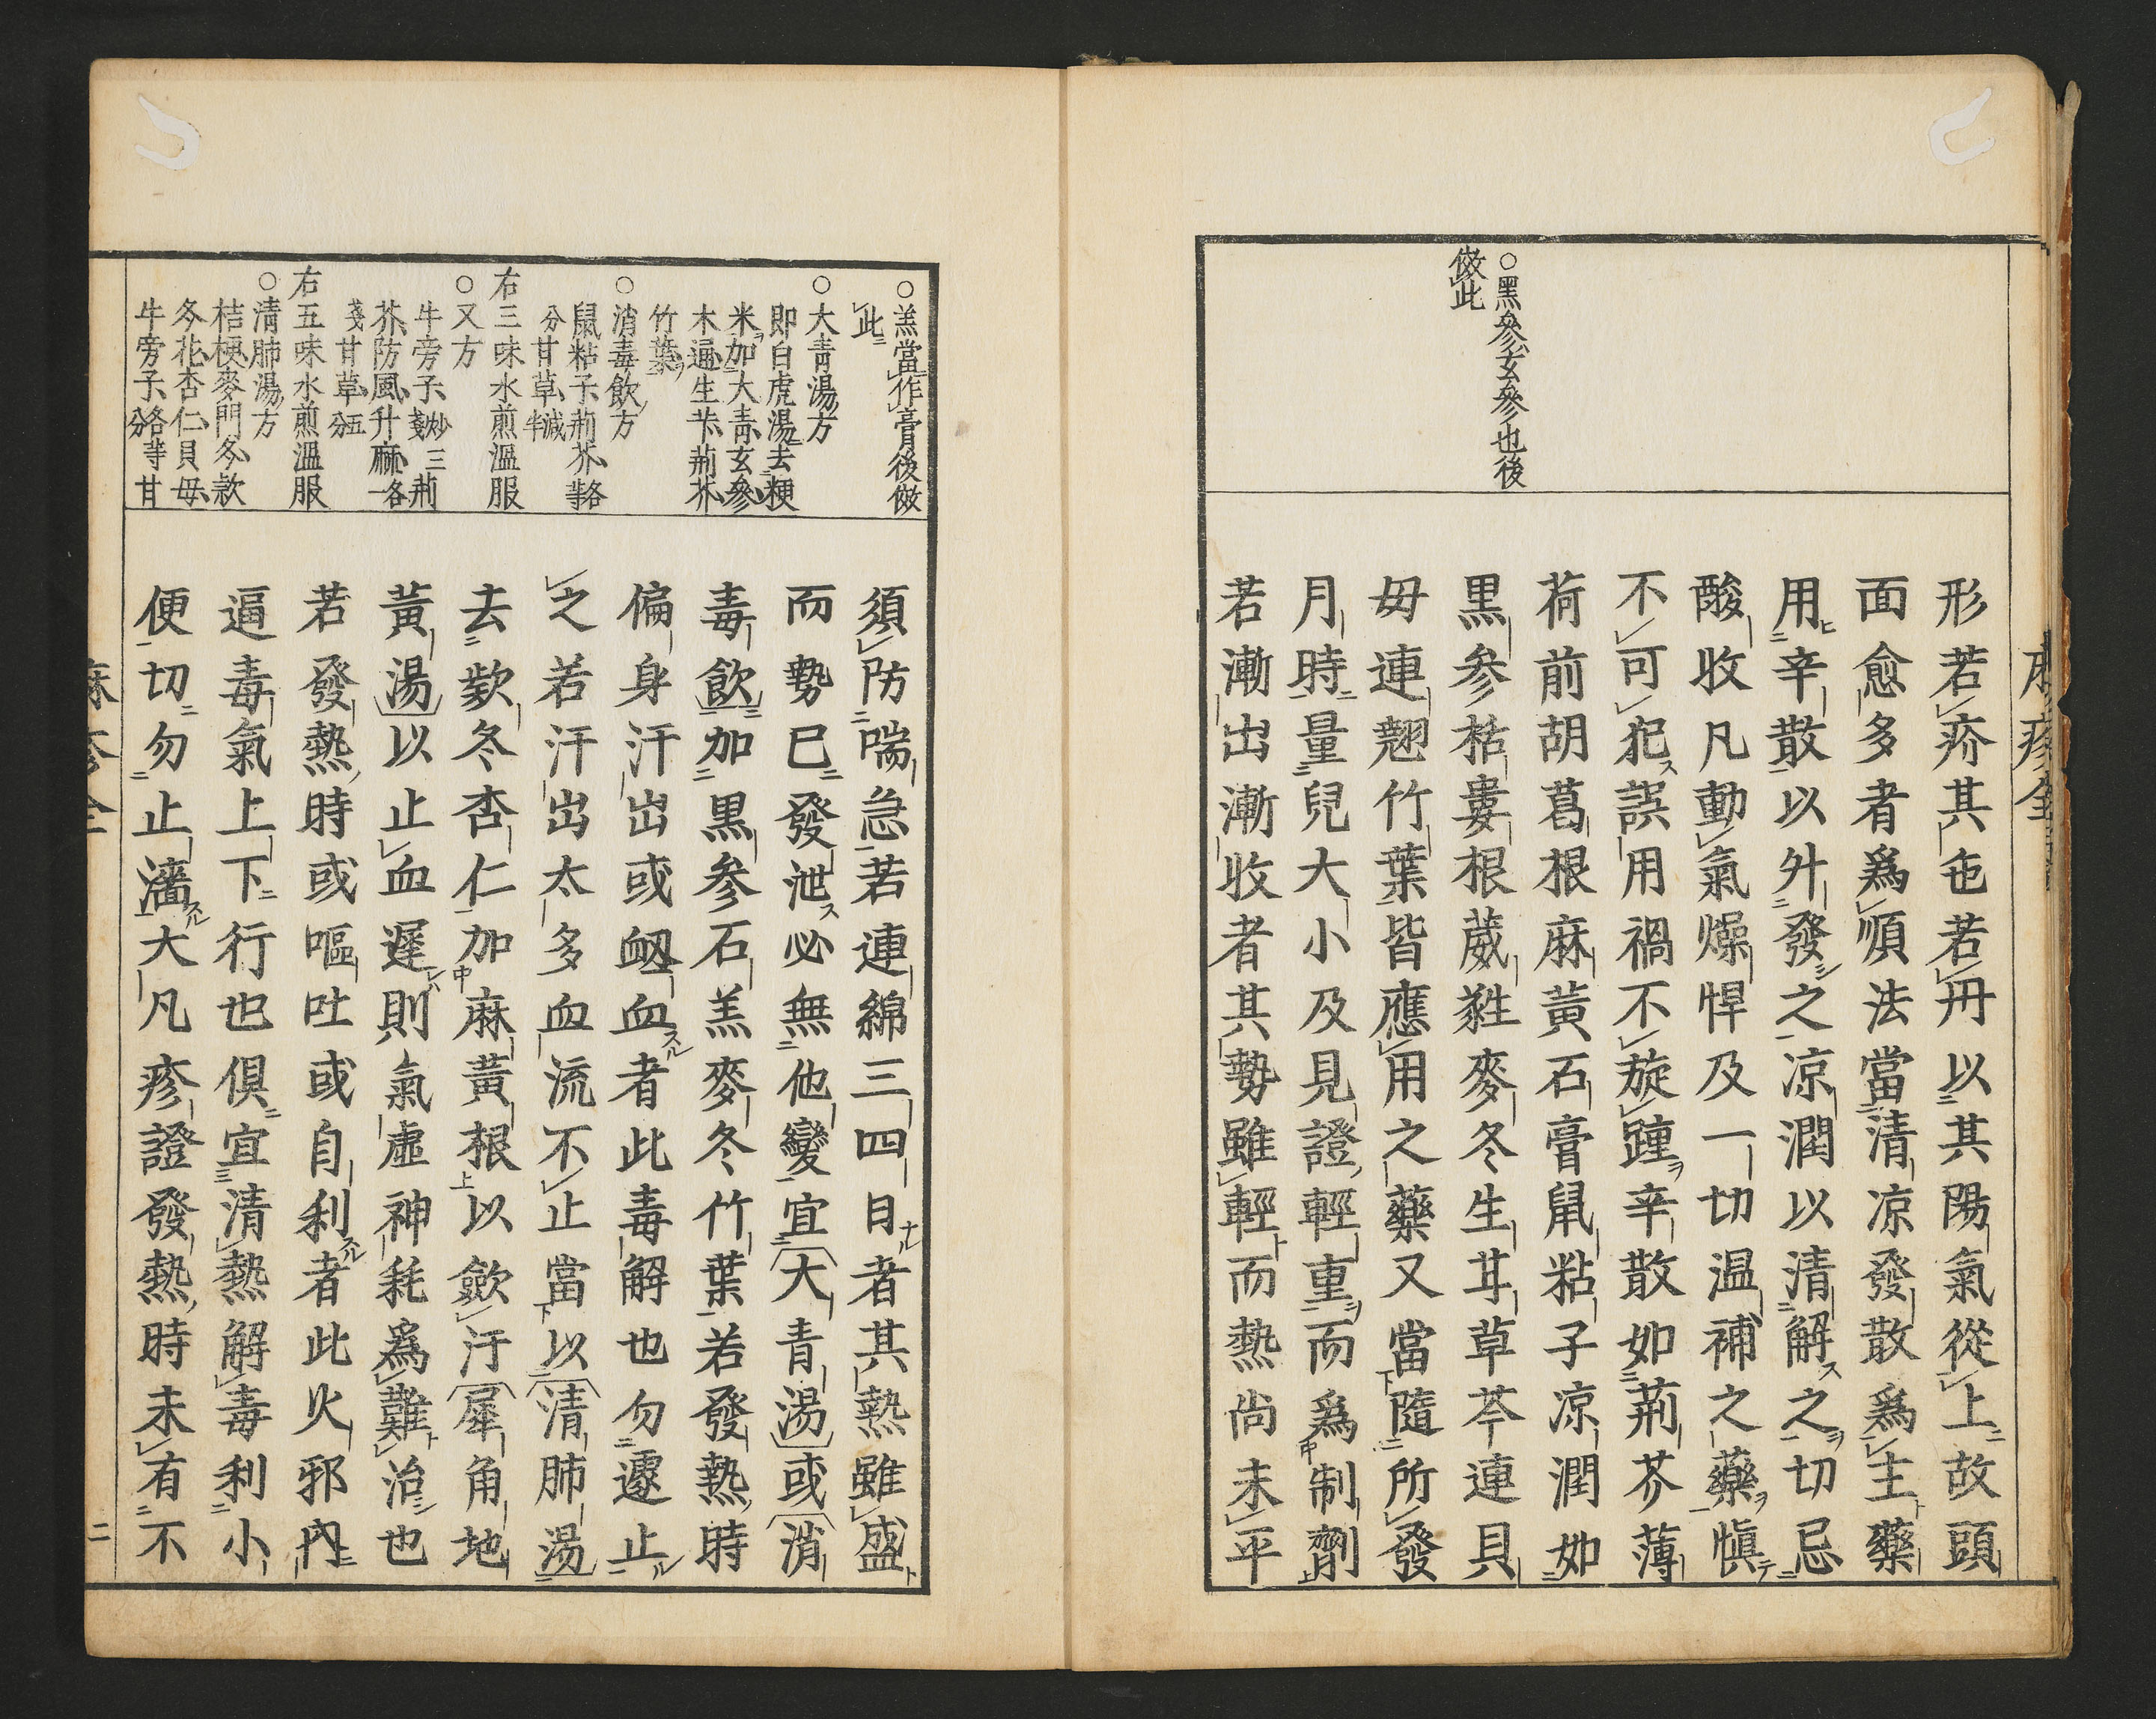 ○黑參玄參也後
倣此
形若疥其色若丹以其陽氣從上故頭
面愈多者爲順法當清凉發散爲主藥
用辛散以升發之凉潤以清解之切忌
酸收凡動氣燥悍及一切温補之藥愼
不可犯誤用禍不旋踵辛散如荊芥薄
荷前胡葛根麻黃石膏鼠粘子凉潤如
黒参栝蔞根葳蕤麥冬生甘草芩連貝
毋連翹竹葉皆應用之藥又當隨所發
月時量兒大小及見證輕重而爲制劑
若漸出漸收者其勢雖輕而熱尚未平
○羔當作膏後倣
此
○大青湯方
即白虎湯去粳
米加大青玄參
木通生芐荊芥
竹葉
○消毒飲方
鼠粘子荊芥各等
分甘草減半
右三味水煎溫服
○又方
牛旁子炒三錢荊
芥防風升麻各一
錢甘草五分
右五味水煎溫服
○清肺湯方
桔梗麥門冬款
冬花杏仁貝毋
牛旁子各等分甘
須防喘急若連綿三四日者其熱雖盛
而勢已發泄必無他變宜大青湯或消
毒飲加黒参石羔麥冬竹葉若發熱時
偏身汗出或衂血者此毒解也勿遽止
之若汗出太多血流不止當以清肺湯
去欵冬杏仁加麻黃根以歛汗犀角地
黃湯以止血遲則氣虛神耗爲難治也
若發熱時或嘔吐或自利者此火邪内
逼毒氣上下行也俱宜清熱解毒利小
便切勿止濇大凡疹證發熱時未有不
二